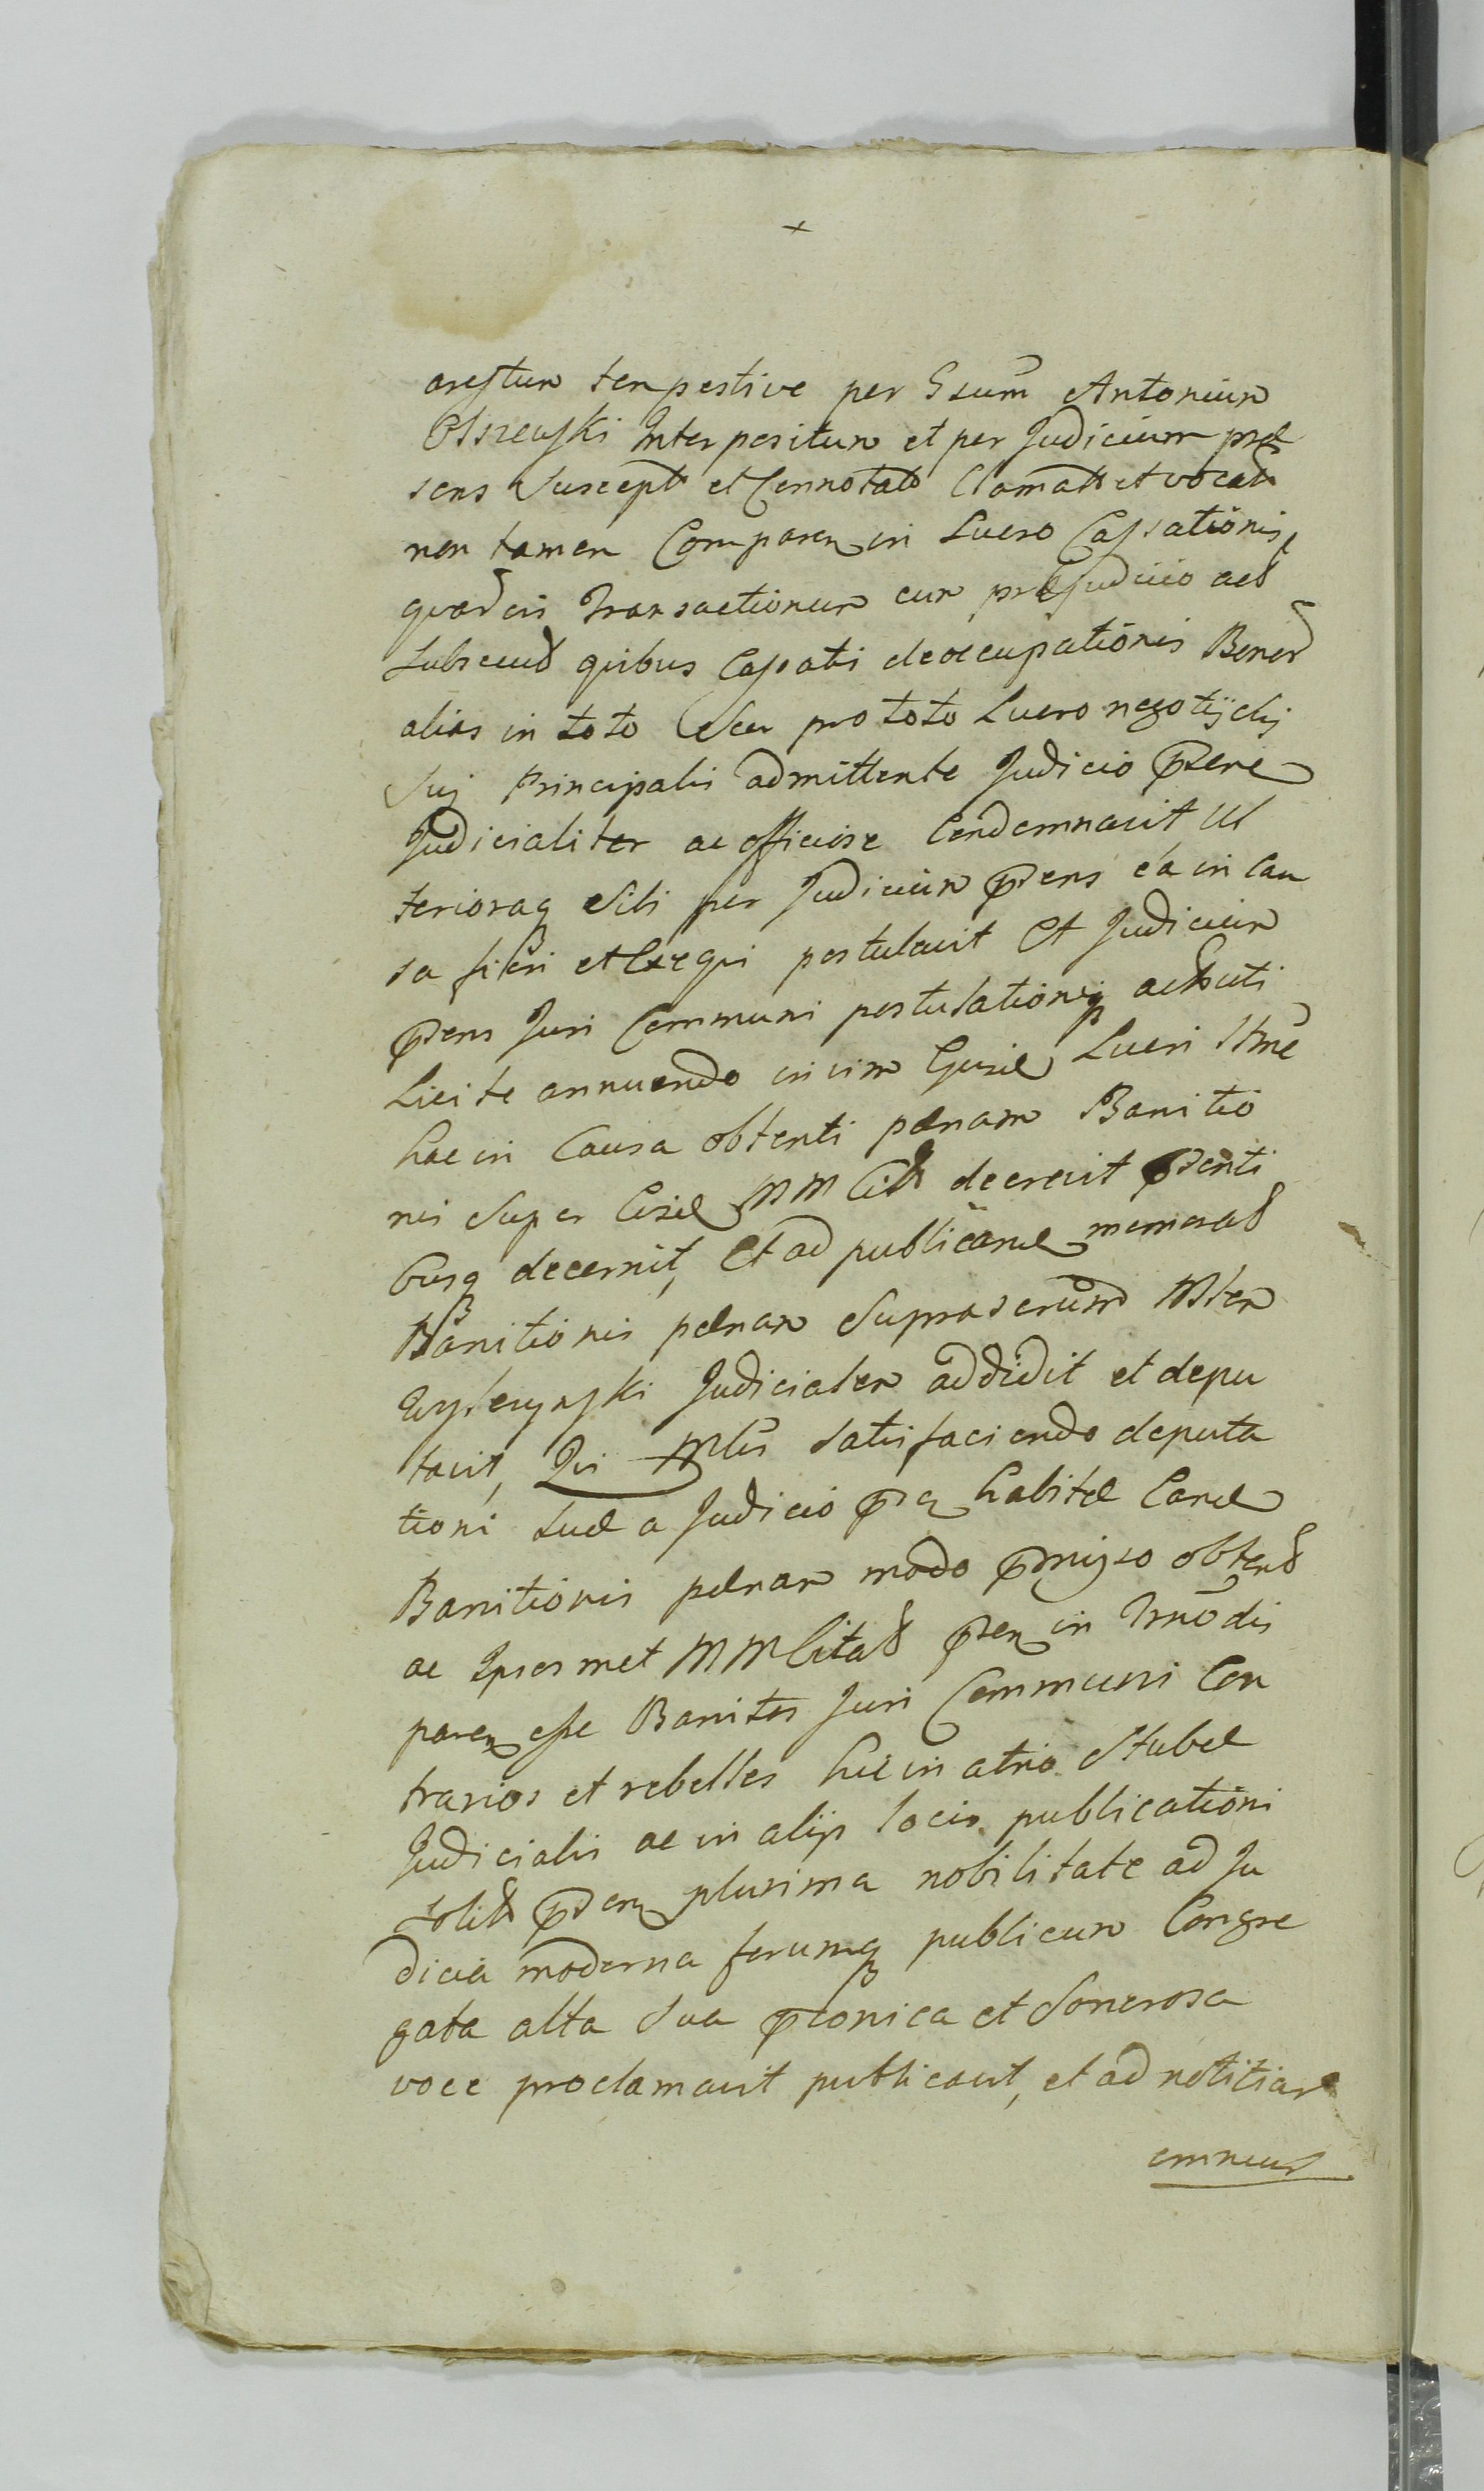 +
arestum tempestive per Gsum Antonium
Olszewski Interpositum et per Judicium præ
sens Suscept et Connotat Clamatt et vocatt
non tamen Comparen in Lucro Cassationis
quarvis Transactionum cum præjudicio act
Subsecut quibus Cassatis deoccupationis Bonor
alias in toto Seu pro toto Lucro negotij chi
Suj Principalis admittente Judicio pszene
Judicialiter ac officiose Condemnavit Ul
terioraq Sibi per Judicium pszens ea in Cau
sa fieri et Exequi postulavit Et Judicium
pszens Juri Communi postulationiq actti uti
Licite annuendo in vim Lucri
hac in Causa obtenti pænam Banitio
nis Super MM Citt decrevit pszenti
busq decernit, Et ad publicand memorat
Banitionis pænam Suprascrum Mtem
Judicialem addidit et depu
tavit, Qui Mtrs satisfaciendo deputa
tioni suæ a Judicio psen habitæ
Banitionis pænam modo præmisso obtent
ac Ipsosmet MM Citat pszen in Trno dis
paren esse Banitos Juri Communi Con
trarios et rebelles hic in atrio Stubæ
Judicialis ac in alijs locis publicationi
solitt pszen plurima nobilitate ad Ju
dicia moderna forumq publicum Congre
gata alta sua pconica et Sonorosa
voce proclamavit publicavit, et ad notitiam
omnium